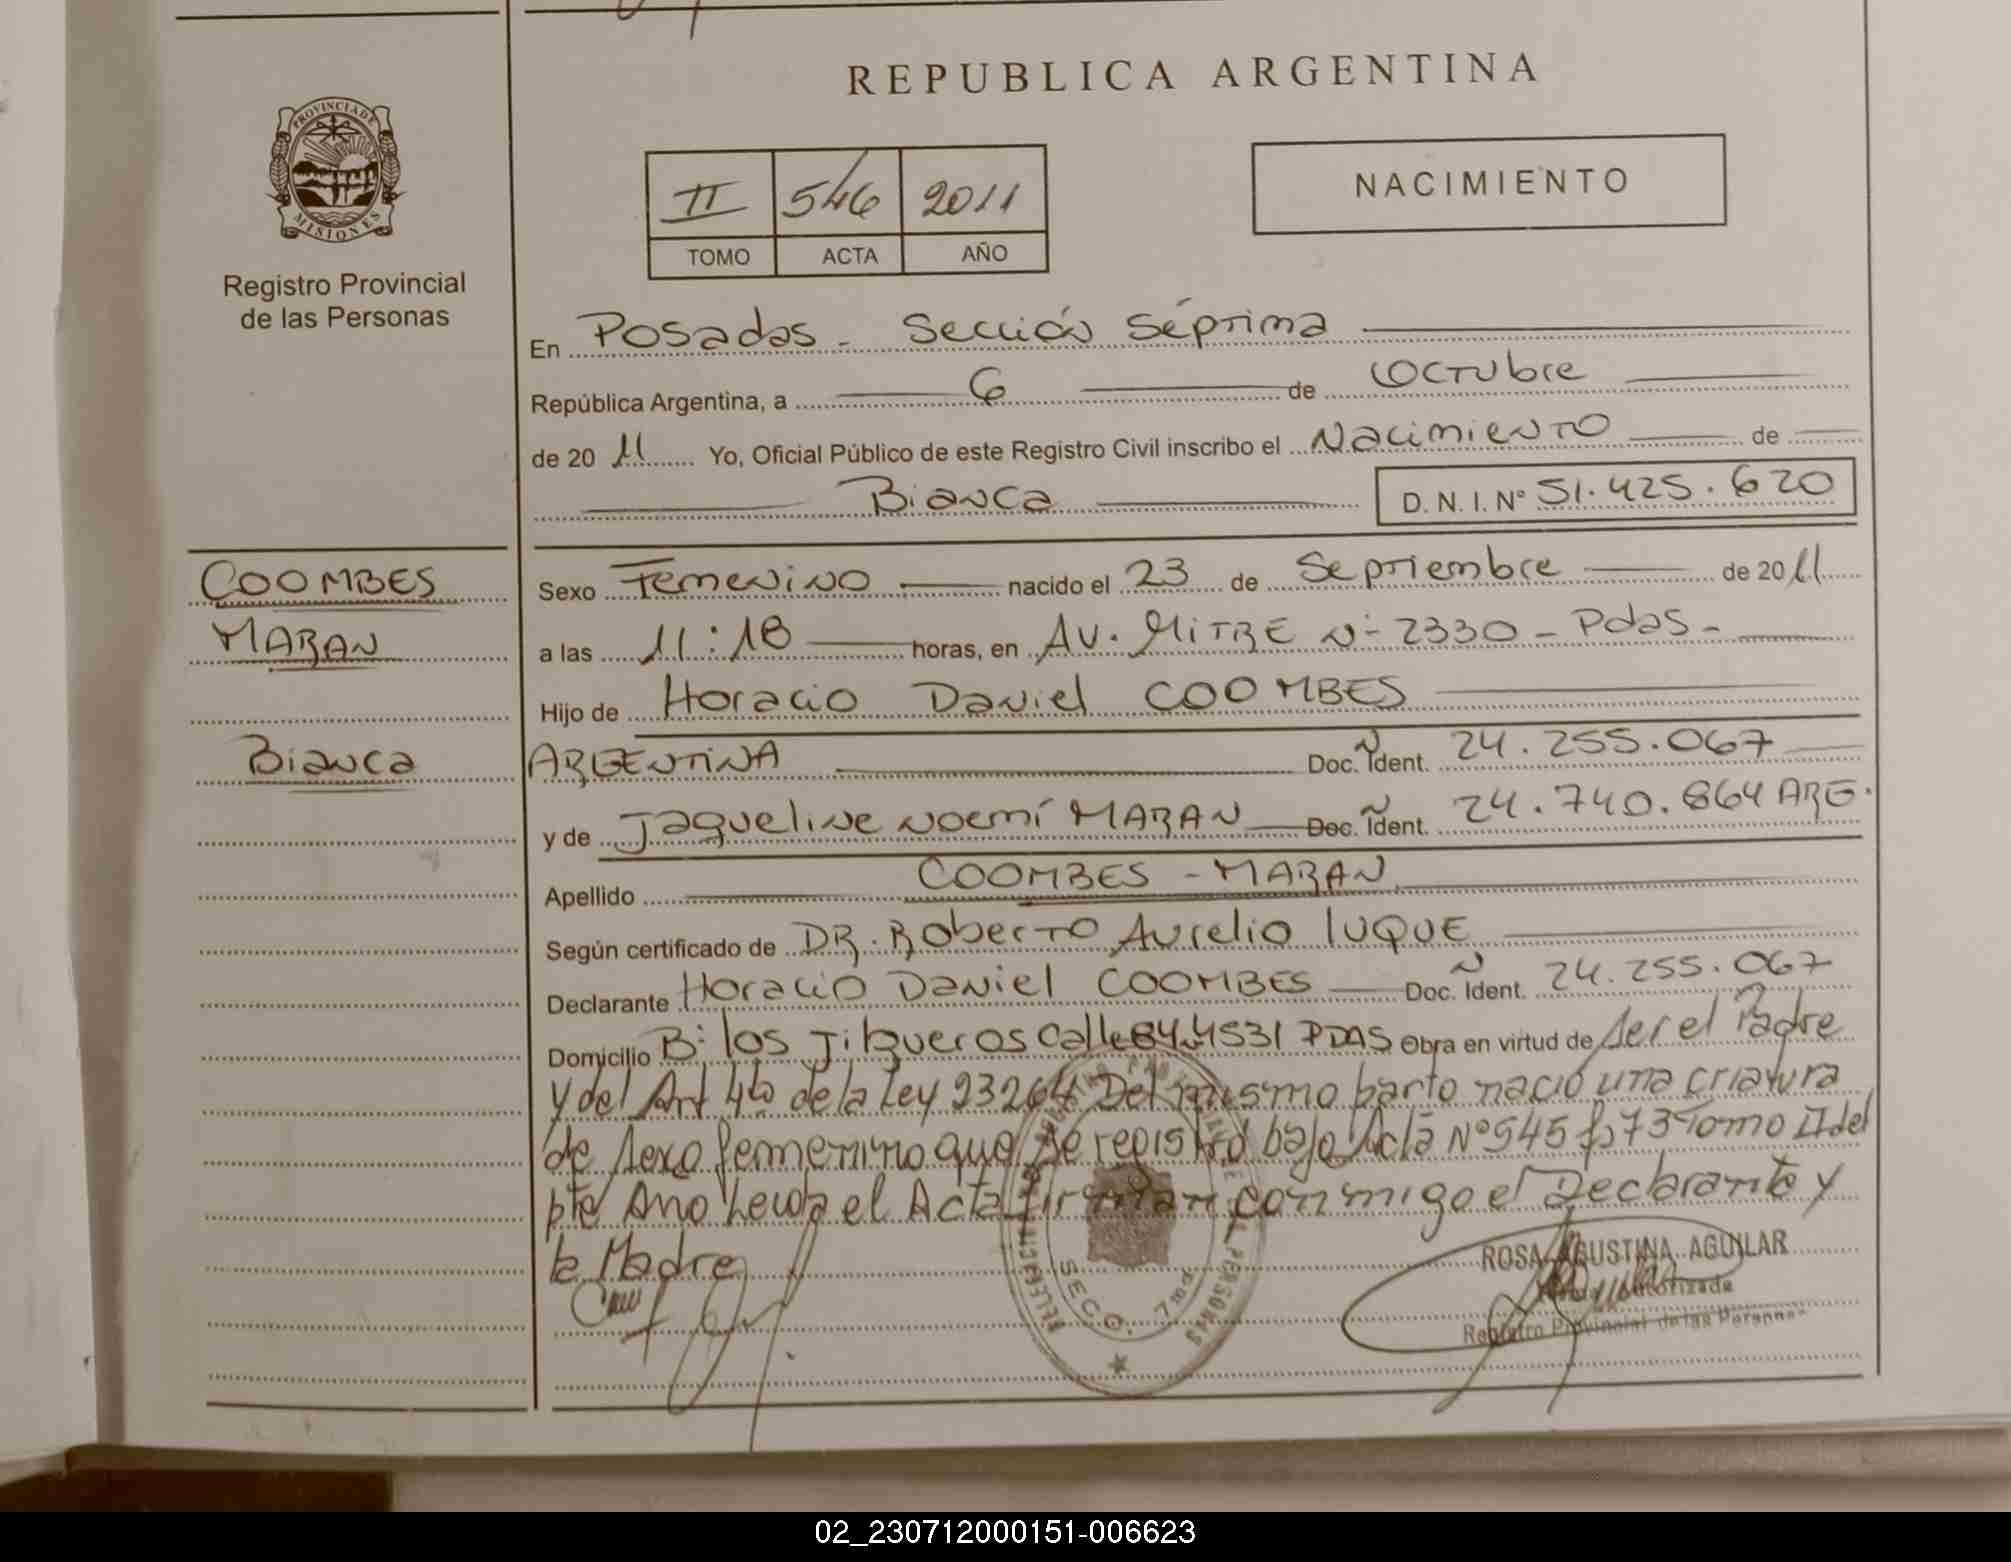 REPUBLICA ARGENTINA
PROVINCIA DE
MISIONES
Registro Provincial
de las Personas
II 546 2011
TOMO ACTA AÑO
NACIMIENTO
En Posadas - Sección Séptima
República Argentina, a 6 de Octubre
de 20 11 Yo, Oficial Público de este Registro Civil inscribo el Nacimiento de
Bianca D. N. I. Nº 51.425.620
COOMBES
MARAN
Bianca
Sexo Femenino nacido el 23 de Septiembre de 20 11
a las 11:18 horas, en AV. MITRE Nº 2330 - Pdas -
Hijo de Horacio Daniel COOMBES
ARGENTINA Doc. Ident. 24.255.067
y de Jaqueline Noemí MARAN Doc. Ident. 24.740.864 ARG.
Apellido COOMBES - MARAN
Según certificado de DR. Roberto Aurelio LUQUE
Declarante Horacio Daniel COOMBES Doc. Ident. 24.255.067
Domicilio Bº los Jilgueros Calle 84 4531 PDAS Obra en virtud de ser el Padre
y del Art 4to de la Ley 23264 Del mismo parto nació una criatura
de sexo femenino que se registró bajo Acta Nº 545 fº 73 Tomo II del
pte Año Leída el Acta firman conmigo el Declarante y
la Madre
SECC. 7ma
ROSA AGUSTINA AGUILAR
Autorizada
Registro Provincial de las Personas
02_230712000151-006623